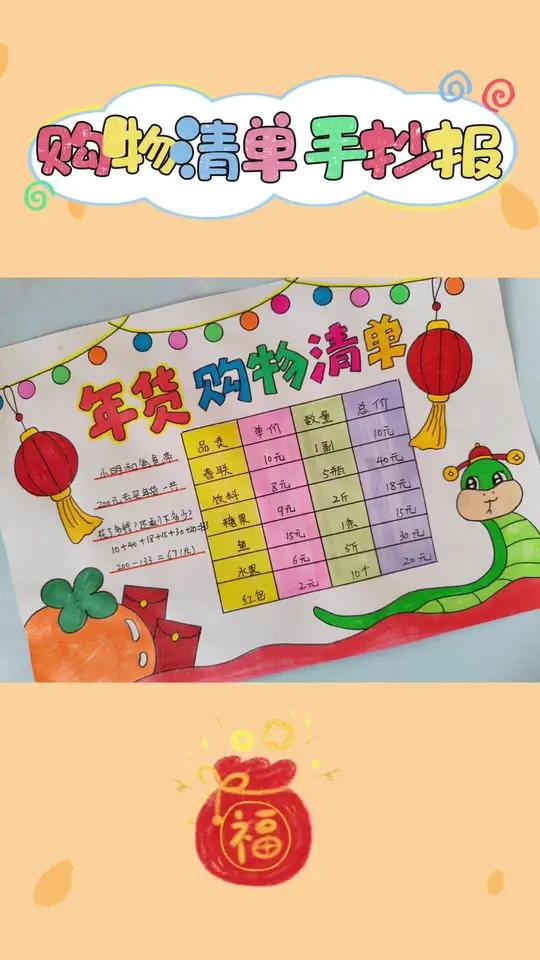 购物清单手抄报
年货购物清单
小明和爸爸带
200元去买年货一共
花了多钱?还剩下多少?
10+40+18+15+30+20=133
200-133=67(元)
品类 单价 数量 总价
春联 10元 1副 10元
饮料 8元 5瓶 40元
糖果 9元 2斤 18元
鱼 15元 1条 15元
水果 6元 5斤 30元
红包 2元 10个 20元
福